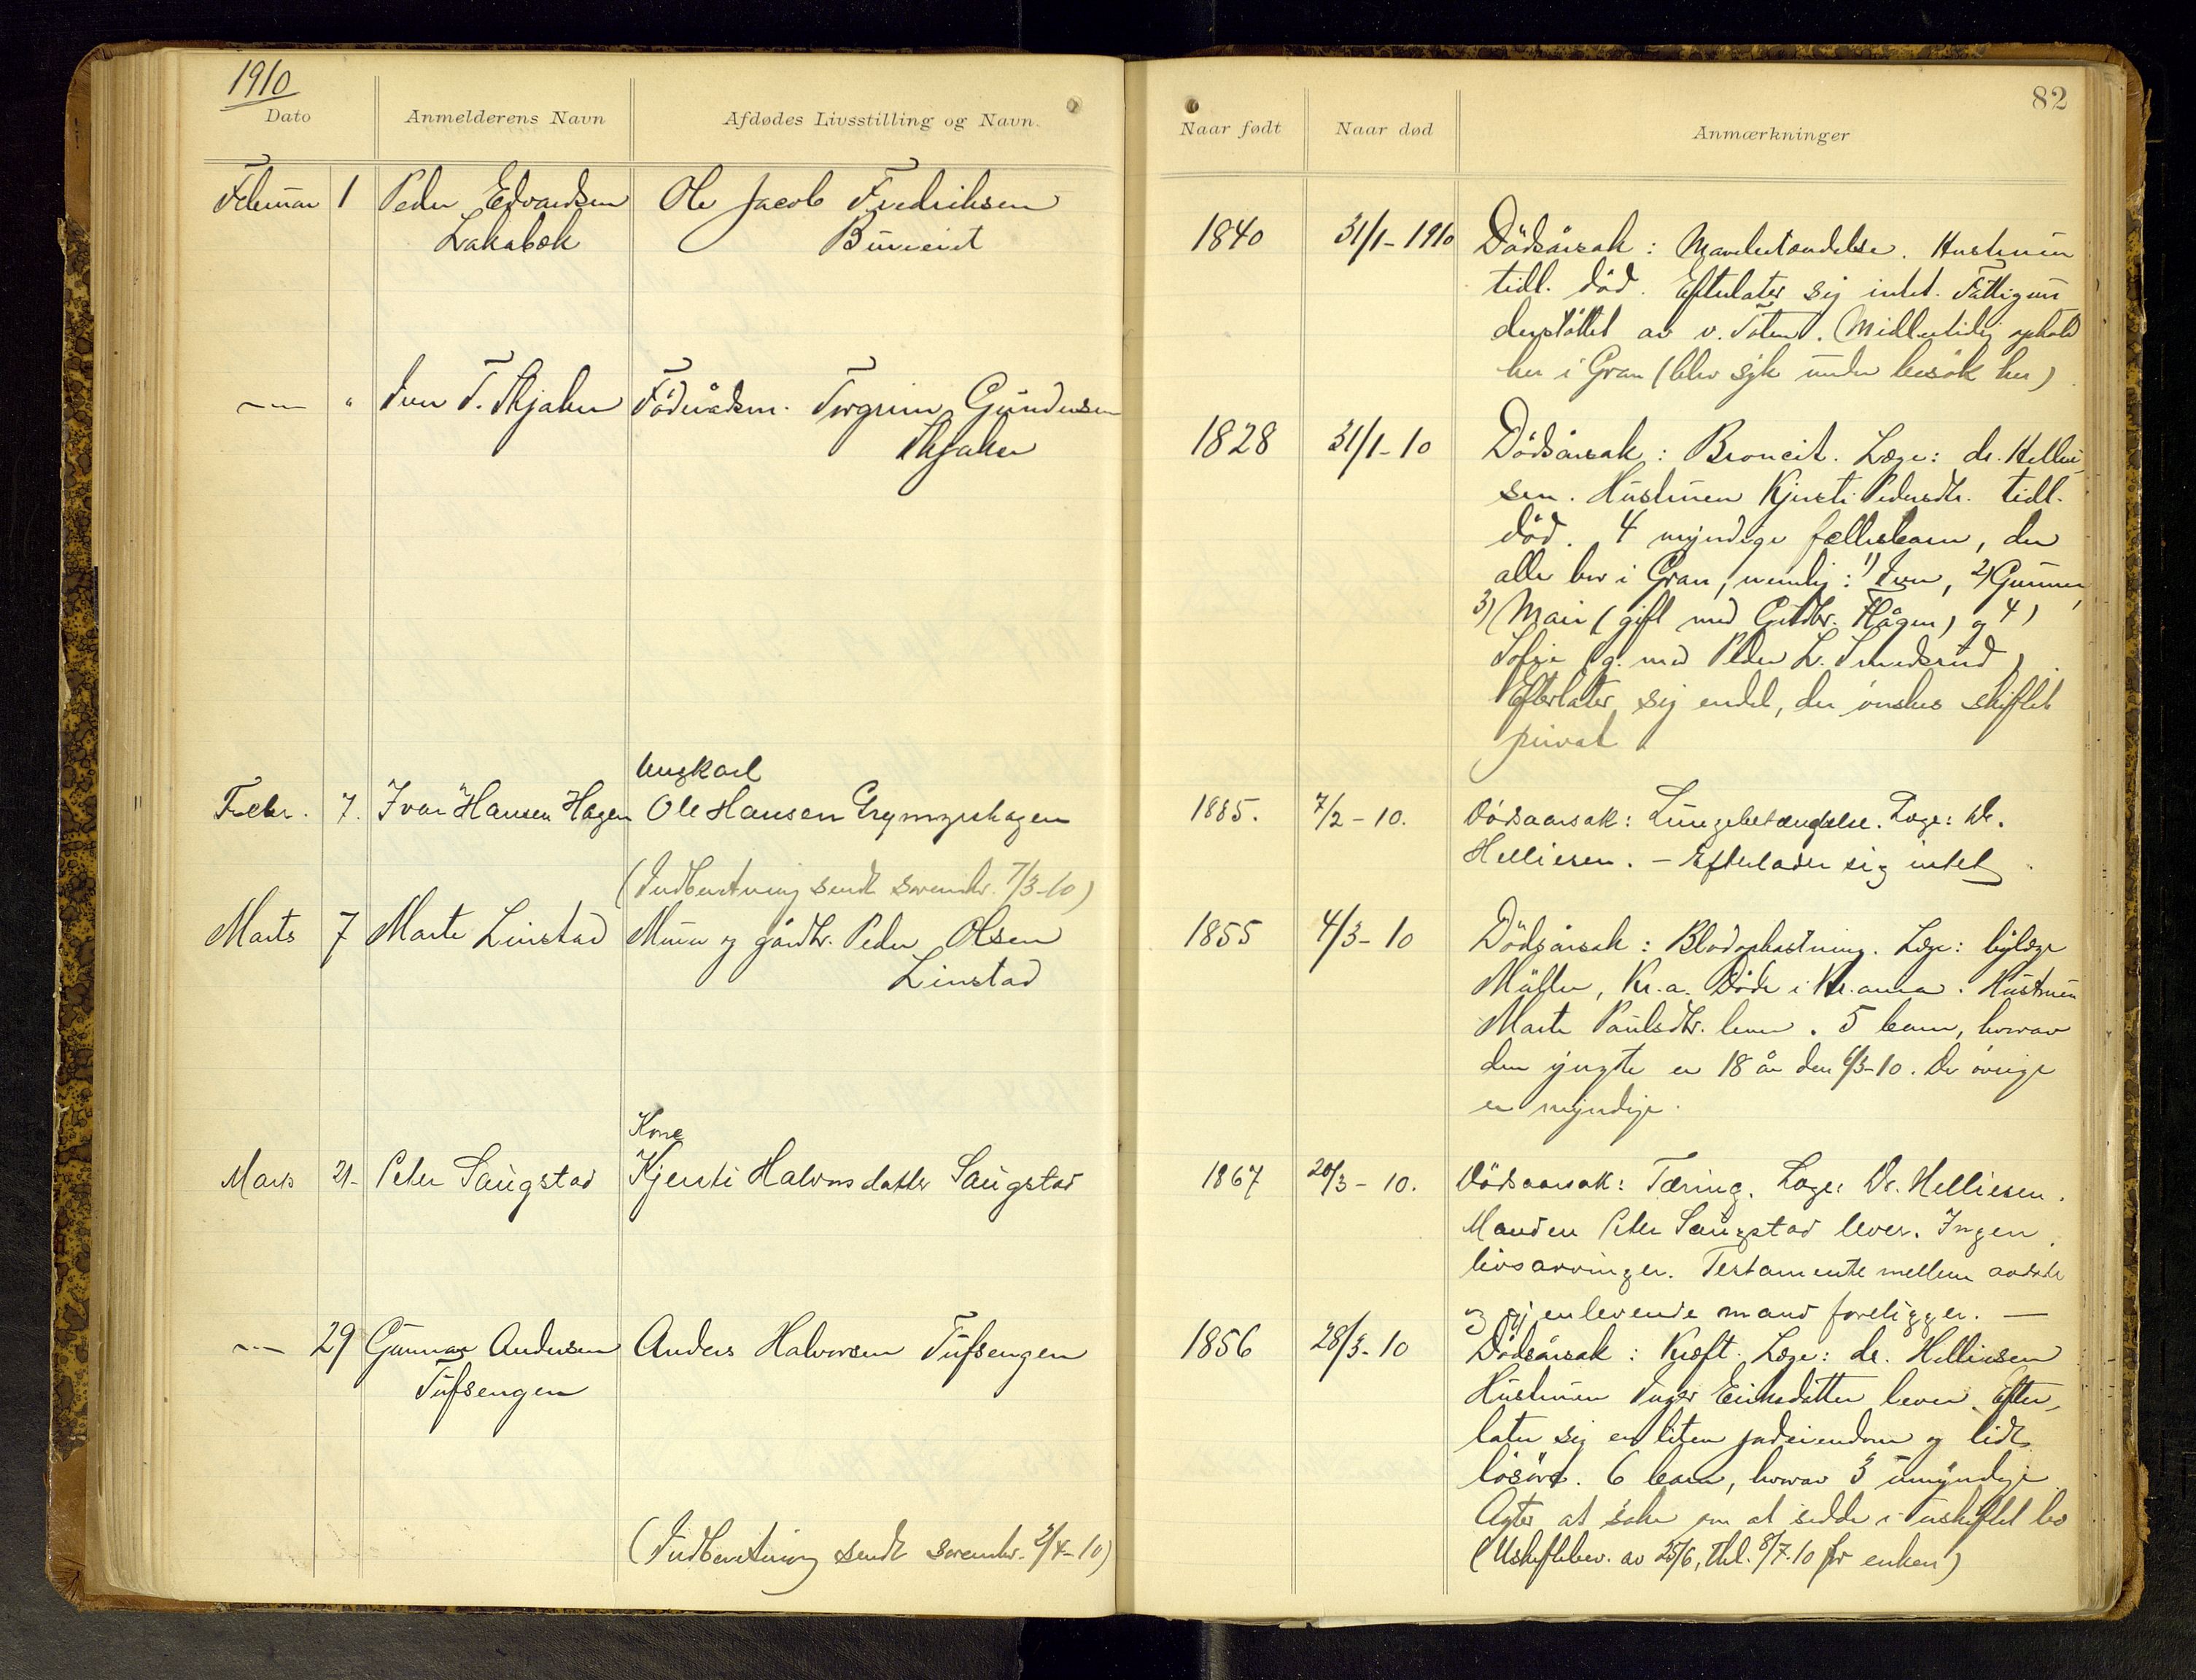 1910
Dato
Anmelderens Navn
Afdødes Livsstilling og Navn.
Februar 1 Peder Edvardsen
Lakabæk
Ole Jacob Fredriksen
— " Iver T.
Föderådsm. Torgrim Gundersen
Ungkarl
Febr. 7. Ivar Hansen Hagen Ole Hansen Grymyrhagen
(Indberetning sendt sorenskr. 7/3-10)
Marts 7 Marte Linstad Murer og gårdbr. Peder Olsen
Linstad
Kone
Mars 21- Peter Saugstad Kjersti Halvorsdatter Saugstad
— 29 Gunnar Andersen Anders Halvorsen Tufsengen
Tufsengen
(Indberetning sendt sorenskr. 2/4-10)
82
Naar født
Naar død
Anmærkninger
1840 31/1-1910 Dödsårsak: Mavebetændelse. Hustruen
tidl. död. Efterlater sig intet. Fattigun
derstöttet av v. Toten. Midlertidig ophold
her i Gran (blev syk under besök her)
1828 31/1-10 Dödsårsak: Broncit. Læge: dr. Hellie
sen. Hustruen Kjersti Pedersdtr. tidl.
död. 4 myndige fællesbarn, der
alle bor i Gran, nemlig: 1) Iver, 2) Gunner,
3) Mari (gift med Gudbr. Hågen) og 4)
Sofie (g. med Peder L. Smedsrud)
Efterlater sig endel, der önskes skiftet
privat
1885. 7/2-10. Dödsaarsak: Lungebetændelse. Læge: Dr.
Helliesen. - Efterlader sig intet.
1855 4/3-10 Dödsårsak: Blodophostning. Læge: bylæge
Müller, Kr.a. Döde i Kr.ania. Hustruen
Marte Paulsdtr. lever. 5 barn, hvorav
den yngste er 18 år den 6/3-10. De övrige
er myndige.
1867 20/3-10. Dödsaarsak: Tæring. Læge: Dr. Helliesen.
Manden Peter Saugstad lever. Ingen
livsarvinger. Testamente mellem avdöde
og gjenlevende mand foreligger. —
1856 28/3-10 Dödsårsak: Kræft. Læge: dr. Helliesen
Hustruen Inger Eriksdatter lever. Efter
later sig en liten jordeiendom og lidt
lösöre. 6 barn, hvorav 3 umyndige.
Agter at söke om at sidde i uskiftet bo
(Uskiftebev. av 25/6, thl. 8/7-10 for enken)